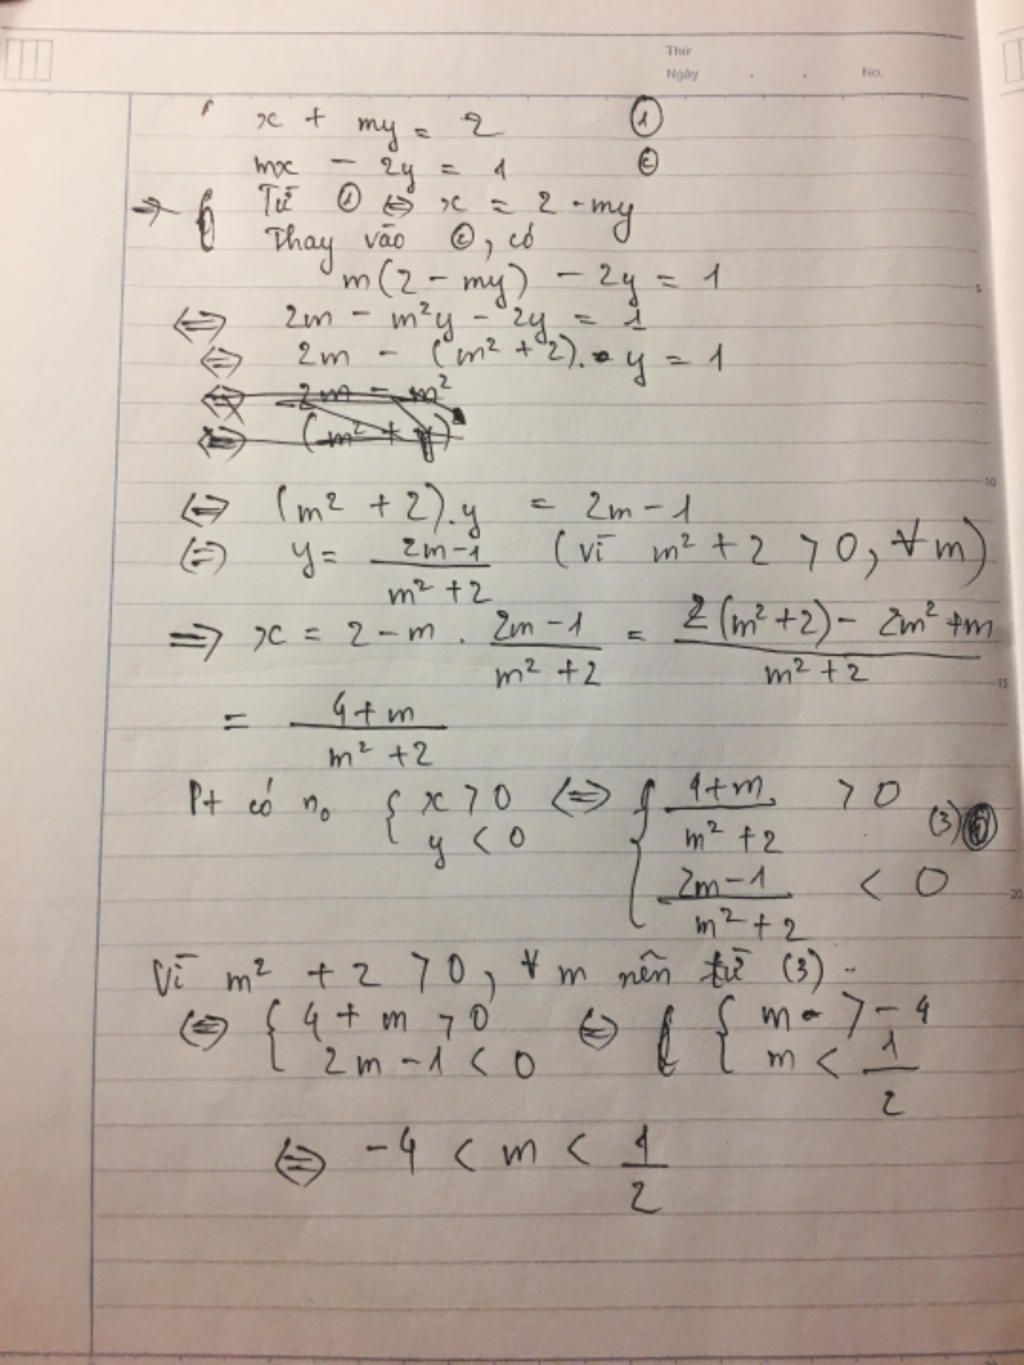 Thứ
Ngày . . No.
x + my = 2 ①
mx - 2y = 1 ②
=> Từ ① <=> x = 2 - my
Thay vào ②, có
m(2 - my) - 2y = 1
<=> 2m - m²y - 2y = 1
<=> 2m - (m² + 2). y = 1
<=> 2m - m²
<=> (m² + y)
<=> (m² + 2).y = 2m - 1
<=> y = \frac{2m-1}{m²+2} (vì m² + 2 > 0, ∀m)
=> x = 2 - m . \frac{2m-1}{m²+2} = \frac{2(m²+2) - 2m² + m}{m²+2}
= \frac{4+m}{m²+2}
Pt có n₀ { x > 0 <=> { \frac{4+m}{m²+2} > 0 (3)
y < 0 \frac{2m-1}{m²+2} < 0
Vì m² + 2 > 0, ∀m nên từ (3)
<=> { 4 + m > 0 <=> { m > -4
2m - 1 < 0 m < \frac{1}{2}
<=> -4 < m < \frac{1}{2}
5
10
15
20